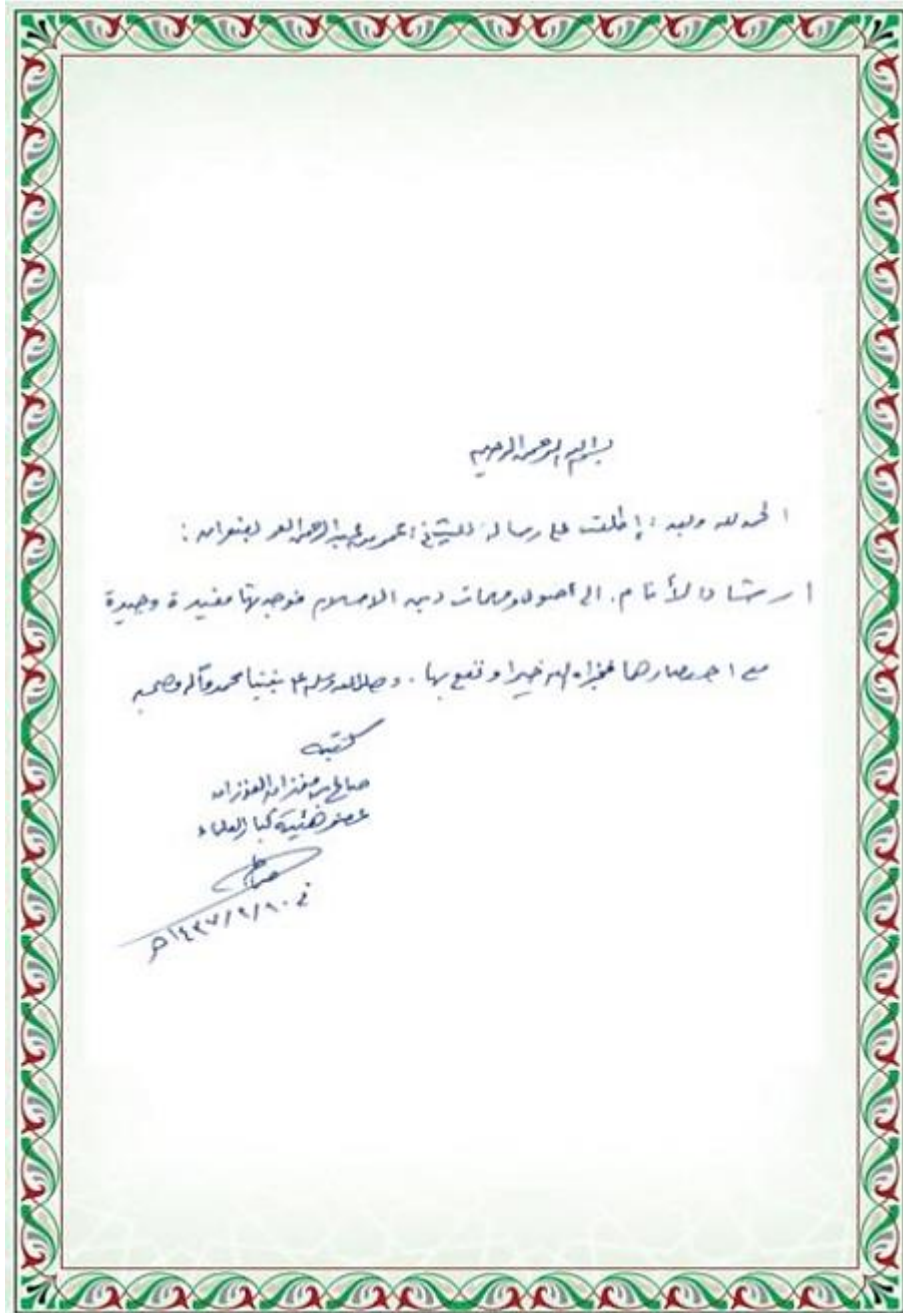 بسم الله الرحمن الرحيم
الحمد لله وبعد : إطلعت على رسالة للشيخ : عمر بن عبد الرحمن العمر بعنوان :
إرشاد الأنام . الى أصول ومهمات دين الاسلام فوجدتها مفيدة وجيدة
مع اختصارها فجزاه الله خيرا ونفع بها . وصلى الله وسلم على نبينا محمد وآله وصحبه
كتبه
صالح بن فوزان الفوزان
عضو هيئة كبار العلماء
في
١٤٣٧هـ